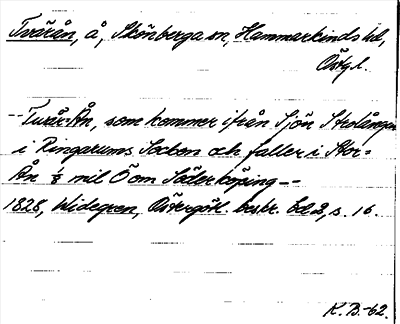 Tvärån, å, Skönberga sn, Hammarkinds hd,
Östgl.
--Twär-Ån, som kommer ifrån Sjön Strolången
i Ringarums Socken och faller i Stor=
Ån 1/8 mil Ö om Söderköping--
1828, Widegren, Östergötl. beskr. Bd 2, s. 16.
K. B.-62.